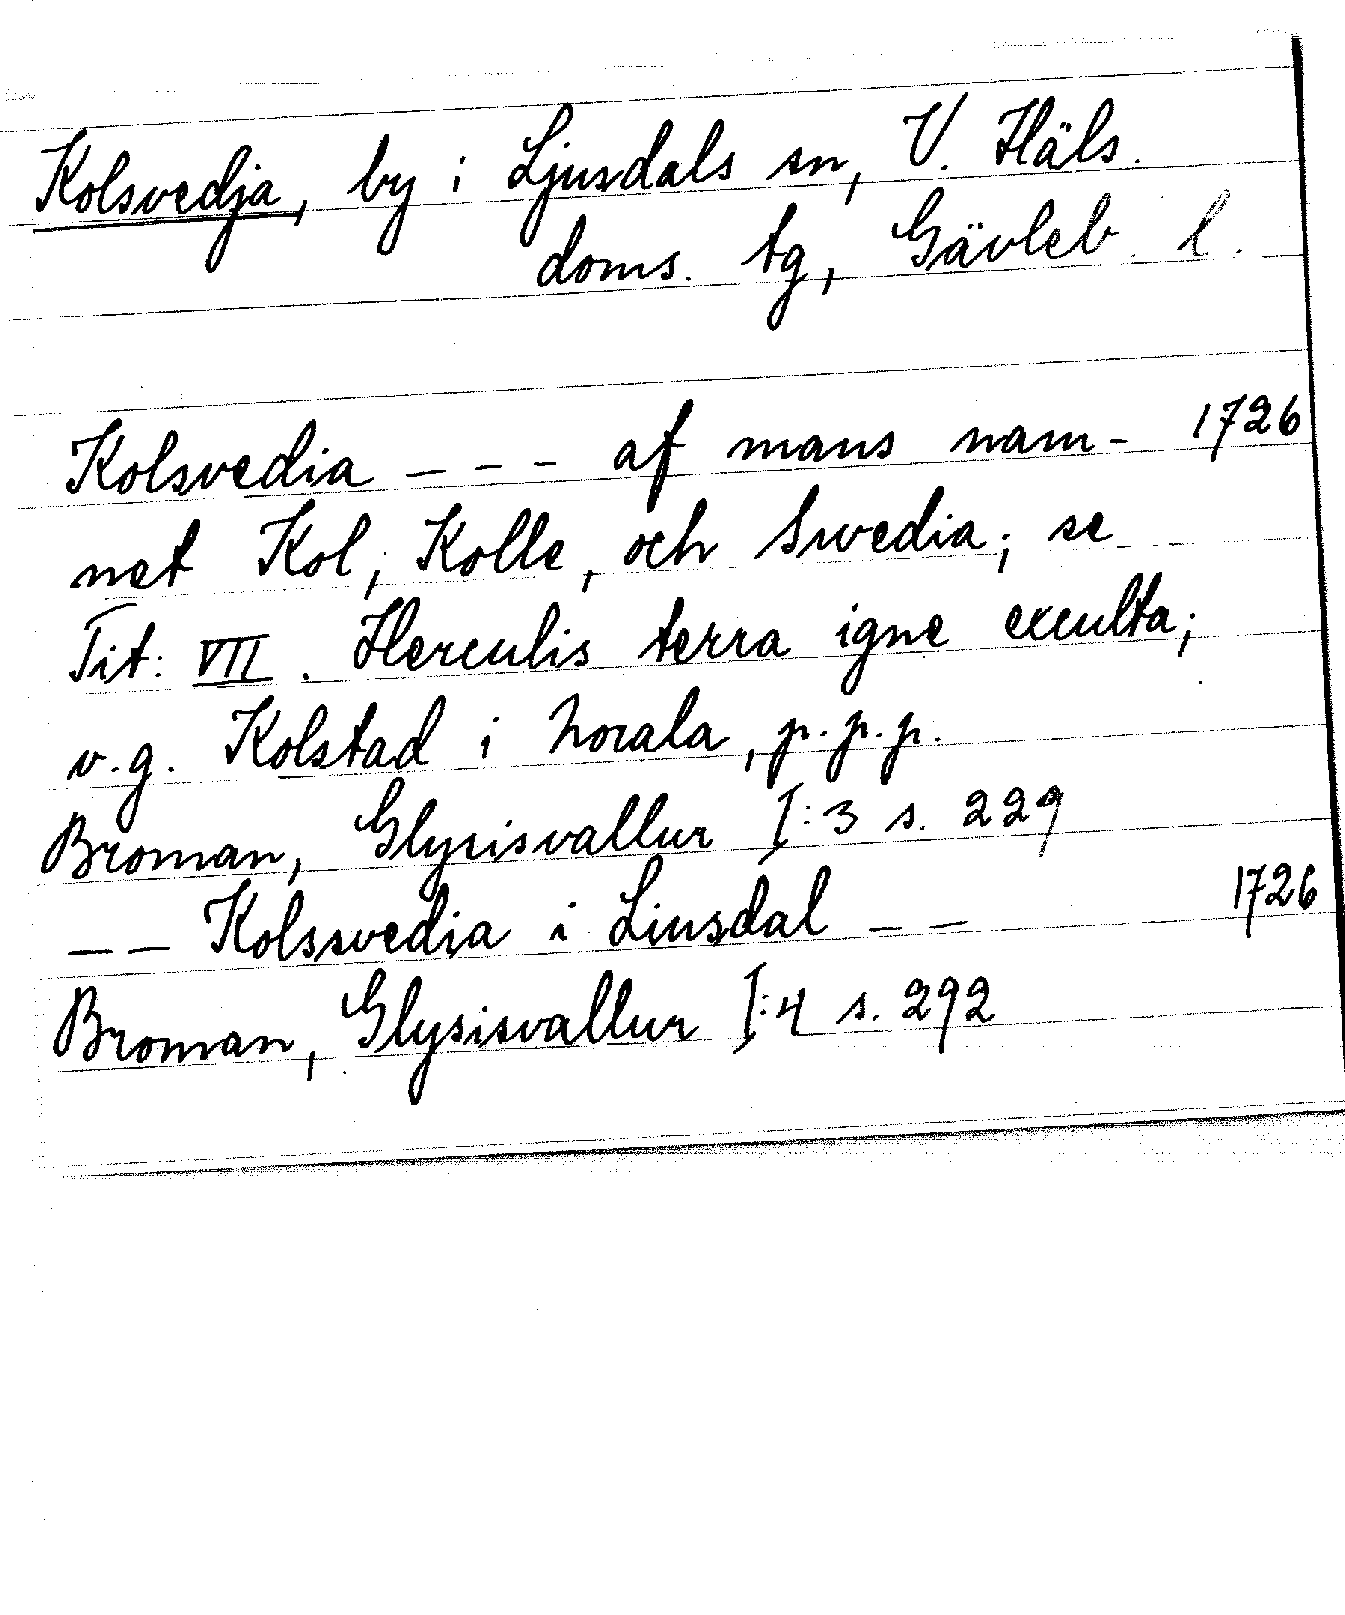 Kolsvedja, by i Ljusdals sn, V. Häls.
doms. tg, Gävleb. l.
Kolsvedia --- af mans nam- 1726
net Kol, Kolle, och Swedia; se
Tit: VII. Herculis terra igne exculta;
v.g. Kolstad i Norala, p.p.p.
Broman, Glysisvallur I:3 s. 229
-- Kolssvedia i Liusdal -- 1726
Broman, Glysisvallur I:4 s. 292